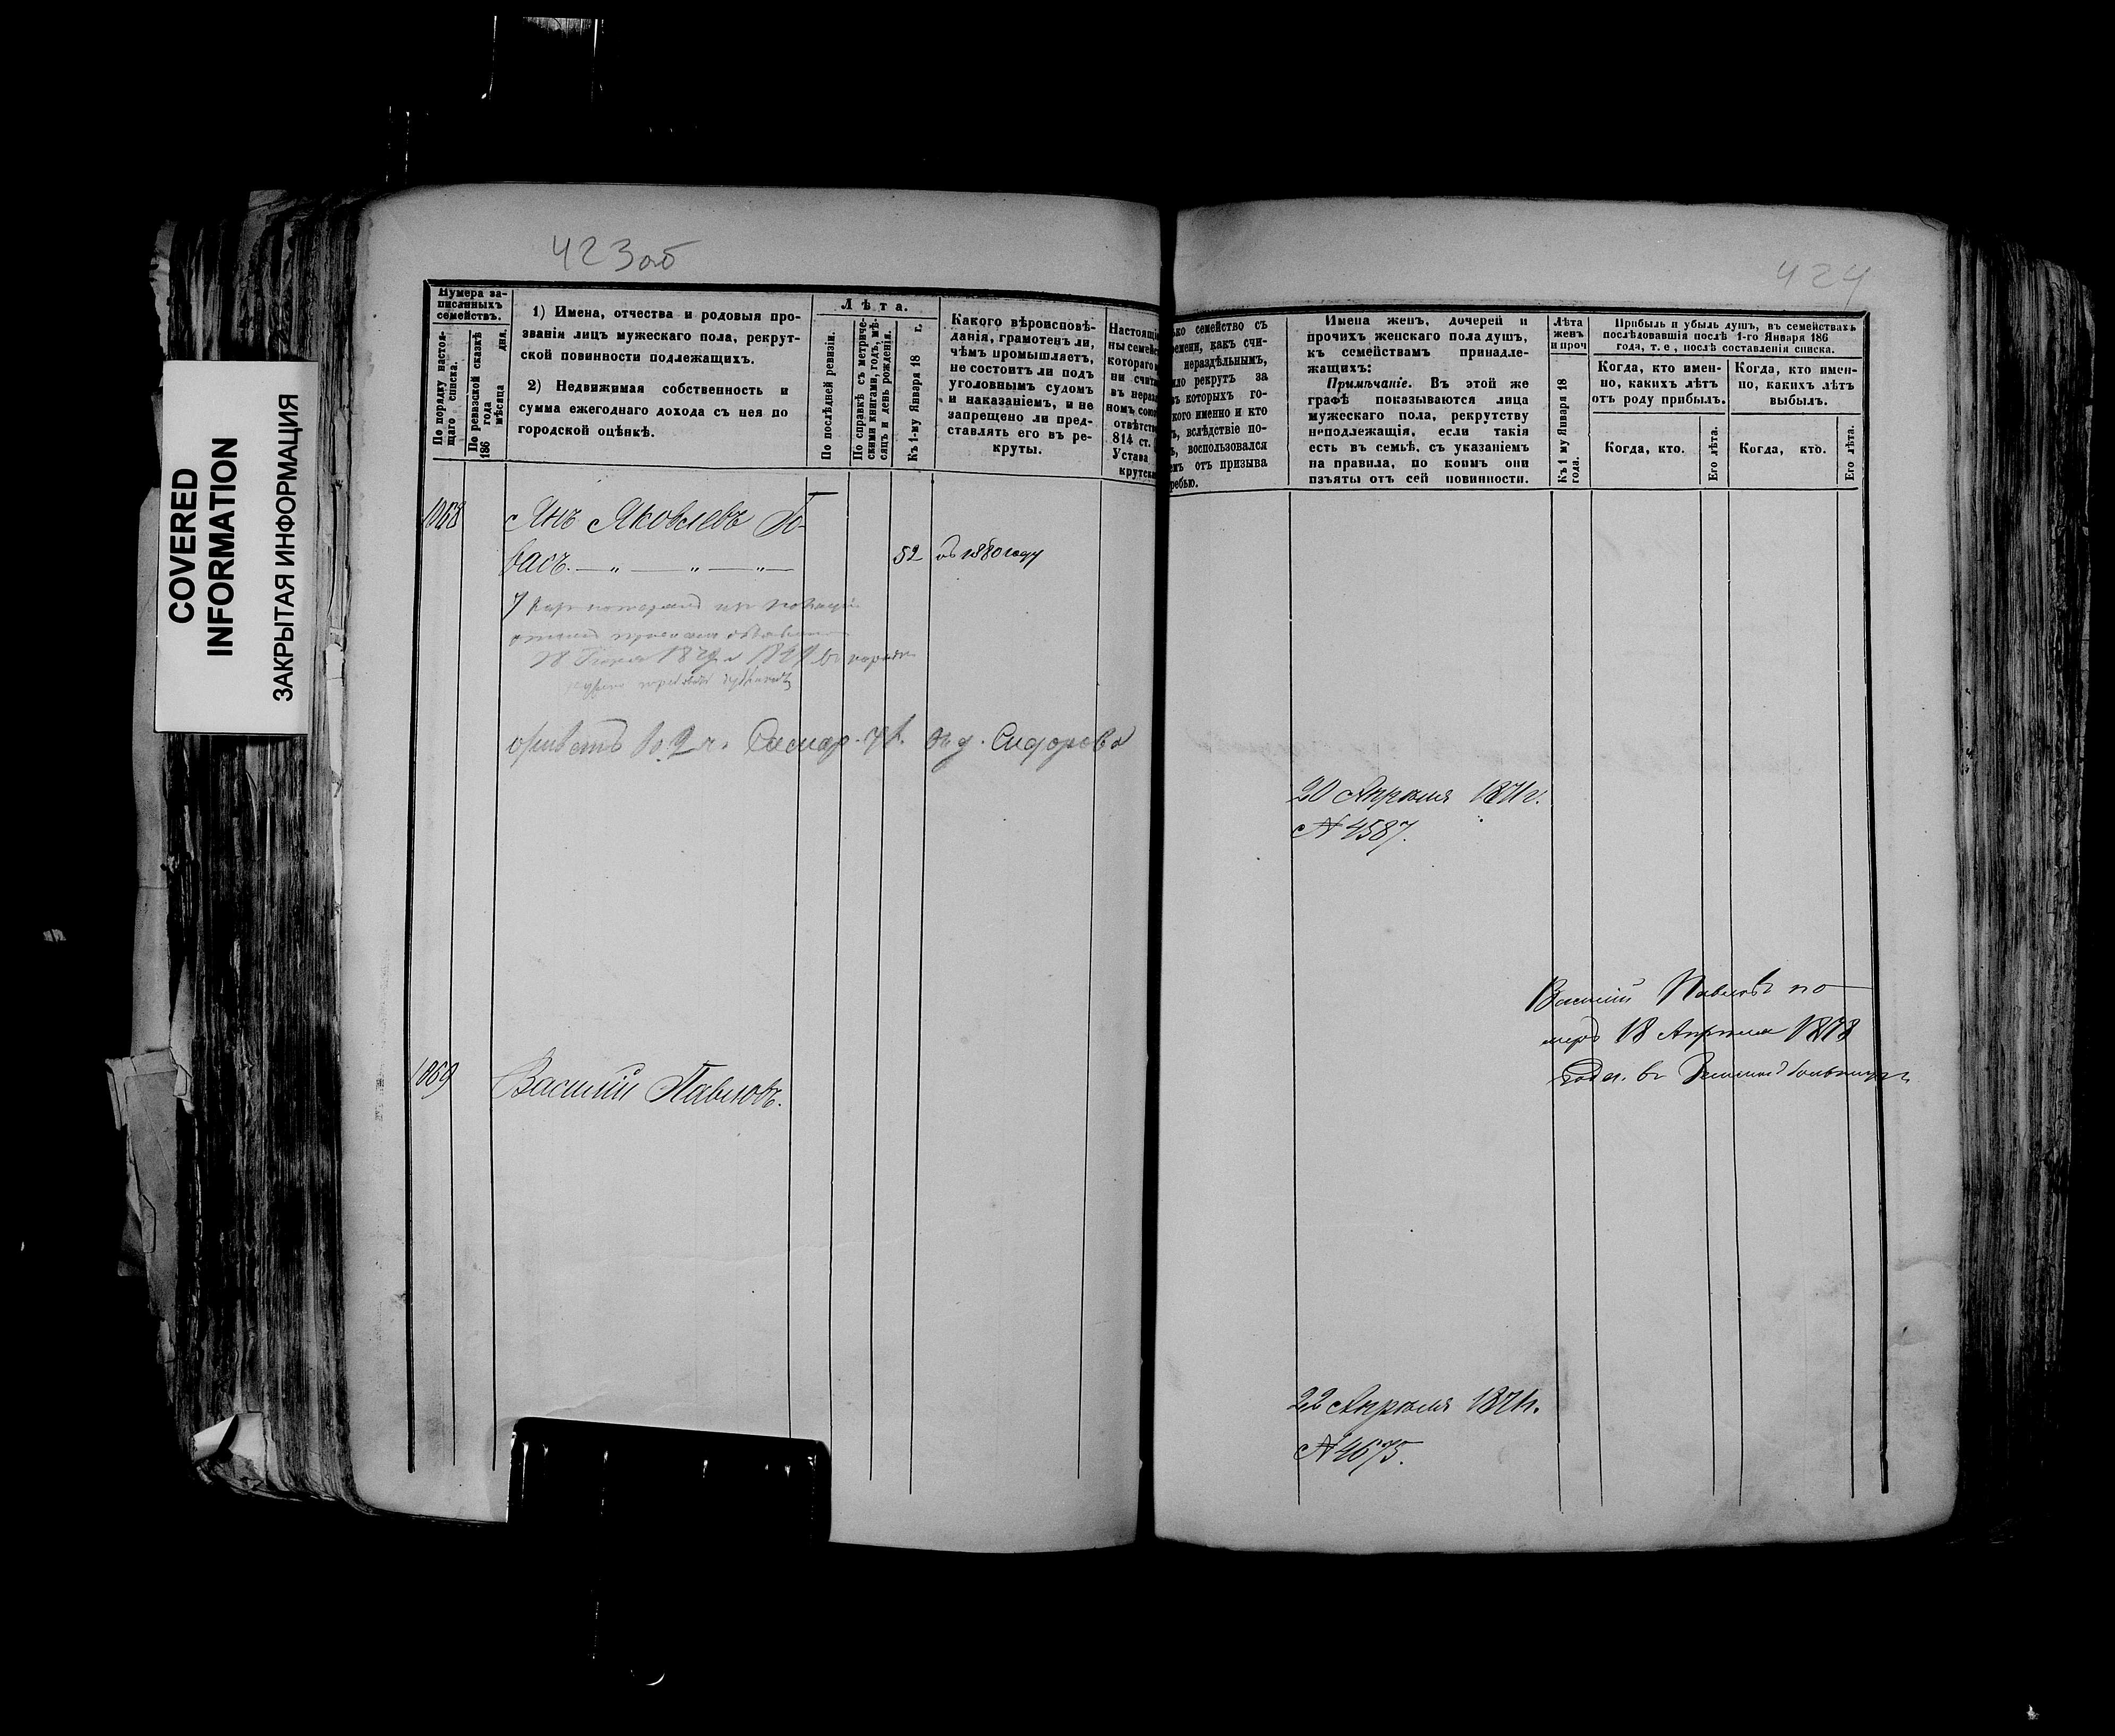 COVERED
INFORMATION
ЗАКРЫТАЯ ИНФОРМАЦИЯ
423об
Нумера за-
писанныхъ
семействъ.
По порядку настоя-
щаго списка.
По ревизской сказкѣ
186 года
мѣсяца дня.
1) Имена, отчества и родовыя про-
званія лицъ мужескаго пола, рекрут-
ской повинности подлежащихъ.
2) Недвижимая собственность и
сумма ежегоднаго дохода съ нея по
городской оцѣнкѣ.
Лѣта.
По послѣдней ревизіи.
По справкѣ съ метриче-
скими книгами, годъ, мѣ-
сяцъ и день рожденія.
Къ 1-му Января 18 г.
Какого вѣроисповѣ-
данія, грамотенъ ли,
чѣмъ промышляетъ,
не состоитъ ли подъ
уголовнымъ судомъ
и наказаніемъ, и не
запрещено ли пред-
ставлять его въ ре-
круты.
Настоящі
ны семейс
котораго
ни счит
въ нераз
номъ союз
отвѣтств
814 ст.
Устава
крутска
1068
Янъ Яковлевъ Го-
басъ.
52 въ 1880 году
2 ч.
Сидорова
1069
Василій Павловъ.
424
ко семейство съ
ремени, какъ счи-
нераздѣльнымъ,
ло рекрутъ за
въ которыхъ го-
кого именно и кто
ъ, вслѣдствіе по-
ъ, воспользовался
емъ отъ призыва
ребью.
Имена женъ, дочерей и
прочихъ женскаго пола душъ,
къ семействамъ принадле-
жащихъ:
Примѣчаніе. Въ этой же
графѣ показываются лица
мужескаго пола, рекрутству
неподлежащія, если такія
есть въ семьѣ, съ указаніемъ
на правила, по коимъ они
изъяты отъ сей повинности.
Лѣта
женъ
и проч
Къ 1 му Января 18
года.
Прибыль и убыль душъ, въ семействахъ
послѣдовавшія послѣ 1-го Января 186
года, т. е , послѣ составленія списка.
Когда, кто имен-
но, какихъ лѣтъ
отъ роду прибылъ.
Когда, кто имен-
но, какихъ лѣтъ
выбылъ.
Когда, кто.
Его лѣта.
Когда, кто.
Его лѣта.
20 Апрѣля 1871 г.
№ 4587.
Василій Павловъ по-
меръ 18 Апрѣля 1878
года. въ больницѣ
22 Апрѣля 1871 г.
№ 4675.